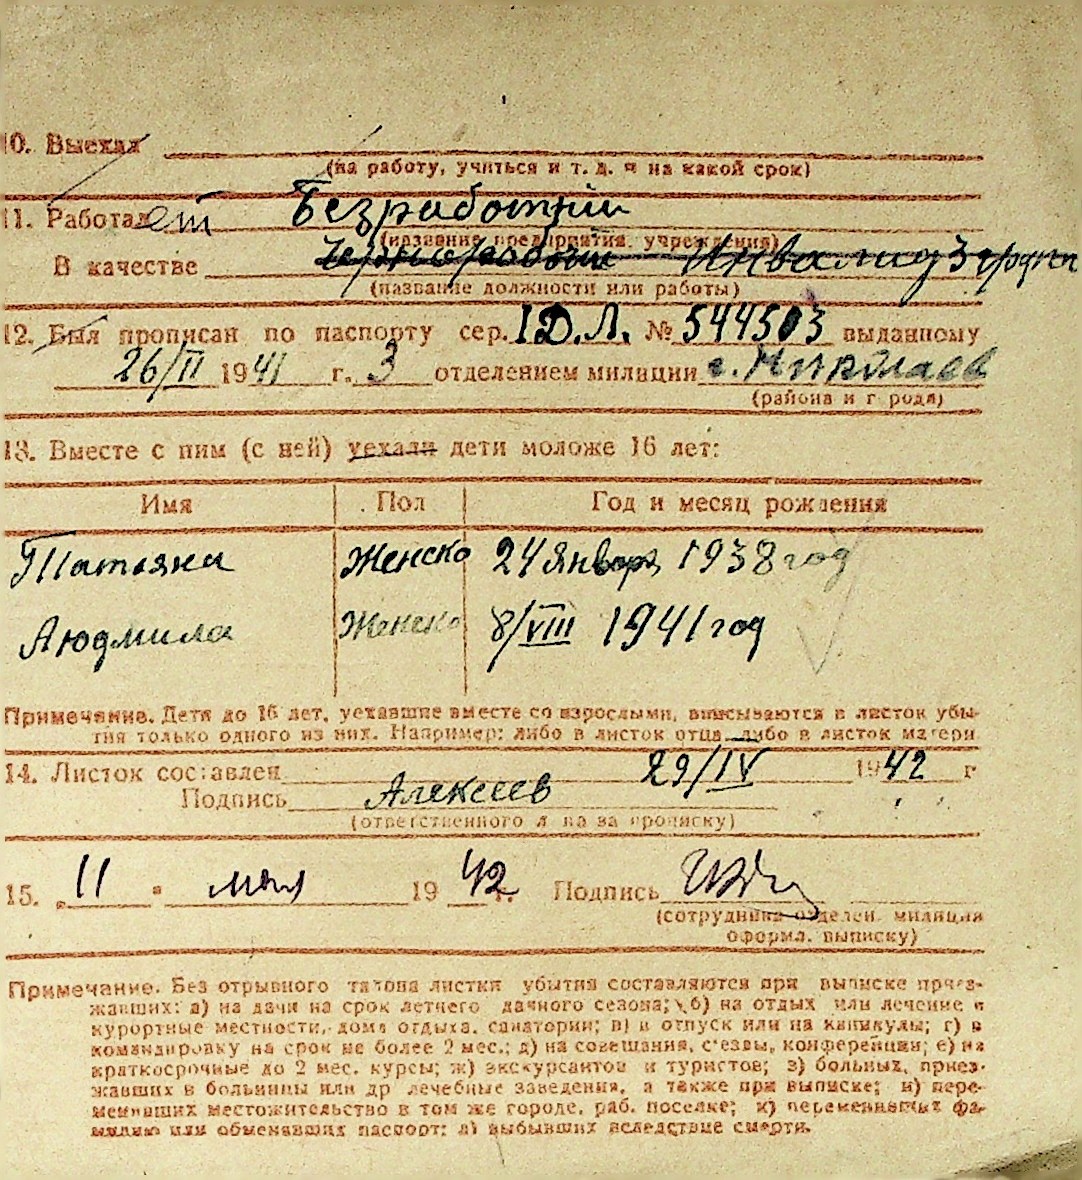 10. Выехал
(на работу, учиться и т. д. и на какой срок)
11. Работает Безработный
(название предприятия, учреждения)
В качестве Чернорабочий Инвалид 3 групп
(название должности или работы)
12. Был прописан по паспорту сер. I Д.Л. № 544503 выданному
26/II 1941 г. 3 отделением милиции г. Николаев
(района и г рода)
13. Вместе с ним (с ней) уехали дети моложе 16 лет:
Имя Пол Год и месяц рождения
Татьяна Женско 24 января 1938 год
Людмила Женско 8/VIII 1941 год
Примечание. Дети до 16 лет, уехавшие вместе со взрослыми, вписываются в листок убы-
тия только одного из них. Например: либо в листок отца, либо в листок матери
14. Листок составлен 29/IV 1942 г
Подпись Алексеев
(ответственного л ца за прописку)
15. „11 " мая 1942 г. Подпись
(сотрудника отделен. милиции
оформл. выписку)
Примечание. Без отрывного талона листки убытия составляются при выписке приез-
жавших: а) на дачи на срок летнего дачного сезона; б) на отдых или лечение в
курортные местности, дома отдыха, санатории; в) в отпуск или на каникулы; г) в
командировку на срок не более 2 мес.; д) на совещания, с'езды, конференции; е) на
краткосрочные до 2 мес. курсы; ж) экскурсантов и туристов; з) больных, приез-
жавших в больницы или др лечебные заведения, а также при выписке; и) пере-
менивших местожительство в том же городе, раб. поселке; к) переменивших фа-
милию или обменявших паспорт; л) выбывших вследствие смерти.